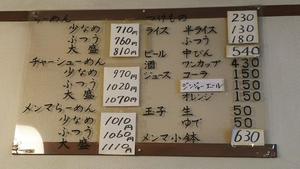 らーめん
少なめ 710円
ふつう 760円
大盛 810円
チャーシューめん
少なめ 970円
ふつう 1020円
大盛 1070円
メンマらーめん
少なめ 1010円
ふつう 1060円
大盛 1110円
つけもの 230
ライス 半ライス 130
ライス 180
ビール 中びん 540
酒 ワンカップ 430
ジュース コーラ 150
ジンジャーエール 150
オレンジ 150
玉子 生 50
ゆで 50
メンマ小鉢 630